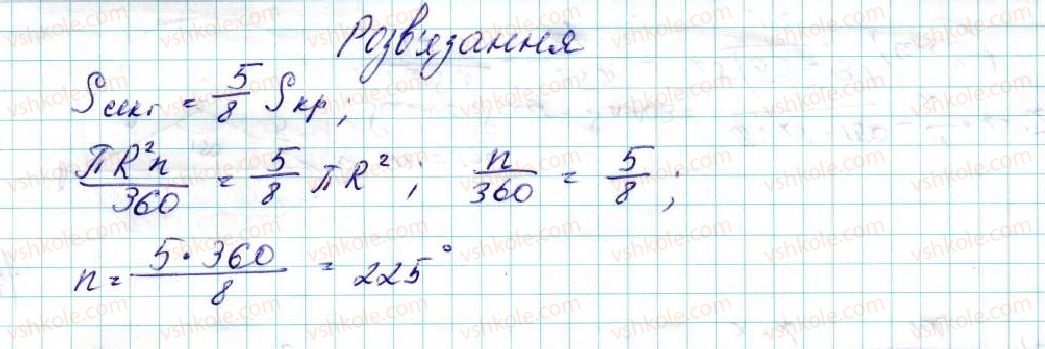 Розв'язання
Sсект = 5/8 Sкр;
πR²n/360 = 5/8 πR²; n/360 = 5/8;
n = 5·360/8 = 225°